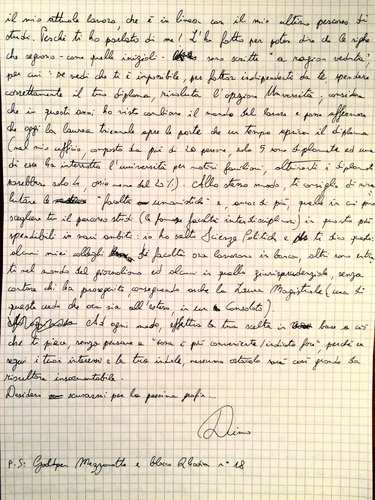 il mio attuale lavoro, che è in linea con il mio ultimo percorso di
studi. Perché ti ho parlato di me? L'ho fatto per poter dire che le righe
che seguono - come quelle iniziali - sono scritte "a ragion veduta",
per cui: se vedi che ti è impossibile, per fattori indipendenti da te, spendere
correttamente il tuo diploma, rivaluta l'opzione Università, considera
che in questi anni ho visto cambiare il mondo del lavoro e posso affermare
che oggi la laurea triennale apre le porte che un tempo apriva il diploma
(nel mio ufficio, composto da più di 20 persone, solo 5 sono diplomate ed una
di esse ha interrotto l'università per motivi familiari, altrimenti i diplomati
sarebbero solo 4, meno del 20%). Allo stesso modo, ti consiglio di riva-
lutare le facoltà umanistiche e, ancor di più, quelle in cui puoi
scegliere tu il percorso studi (le facoltà interdisciplinari) in quanto più
spendibili in vari ambiti: io ho scelto Scienze Politiche e ti dico questo:
alcuni miei colleghi di facoltà ora lavorano in banca, altri sono entra-
ti nel mondo del giornalismo ed alcuni in quello giurisprudenziale, senza
contare chi ha proseguito conseguendo anche la Laurea Magistrale (uno di
questi credo che ora sia all'estero, in un Consolato).
Ad ogni modo, effettua la tua scelta in base a ciò
che ti piace, senza pensare a "cosa è più conveniente/indicato fare" perché se
segui i tuoi interessi e la tua indole, nessuno ostacolo sarà così grande da
risultare insormontabile.
Desidero scusarmi per la pessima grafia...
Dino
P.S: Mezzanotte e n° 18